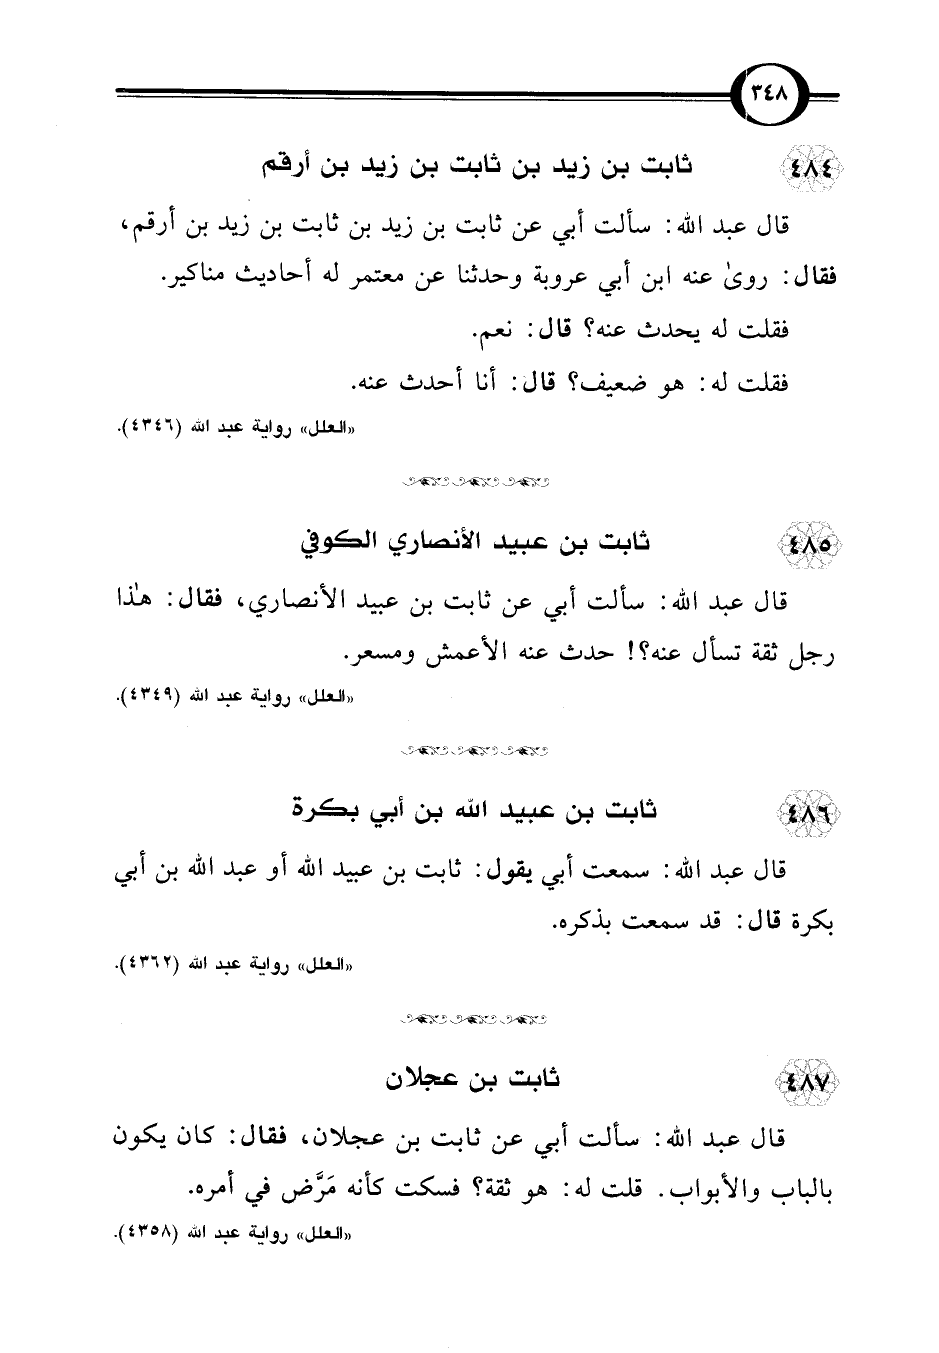 ٣٤٨
٤٨٤ ثابت بن زيد بن ثابت بن زيد بن أرقم
قال عبد الله: سألت أبي عن ثابت بن زيد بن ثابت بن زيد بن أرقم،
فقال: روىٰ عنه ابن أبي عروبة وحدثنا عن معتمر له أحاديث مناكير.
فقلت له يحدث عنه؟ قال: نعم.
فقلت له: هو ضعيف؟ قال: أنا أحدث عنه.
«العلل» رواية عبد الله (٤٣٤٦).
٤٨٥ ثابت بن عبيد الأنصاري الكوفي
قال عبد الله: سألت أبي عن ثابت بن عبيد الأنصاري، فقال: هـٰذا
رجل ثقة تسأل عنه؟! حدث عنه الأعمش ومسعر.
«العلل» رواية عبد الله (٤٣٤٩).
٤٨٦ ثابت بن عبيد الله بن أبي بكرة
قال عبد الله: سمعت أبي يقول: ثابت بن عبيد الله أو عبد الله بن أبي
بكرة قال: قد سمعت بذكره.
«العلل» رواية عبد الله (٤٣٦٢).
٤٨٧ ثابت بن عجلان
قال عبد الله: سألت أبي عن ثابت بن عجلان، فقال: كان يكون
بالباب والأبواب. قلت له: هو ثقة؟ فسكت كأنه مَرَّض في أمره.
«العلل» رواية عبد الله (٤٣٥٨).